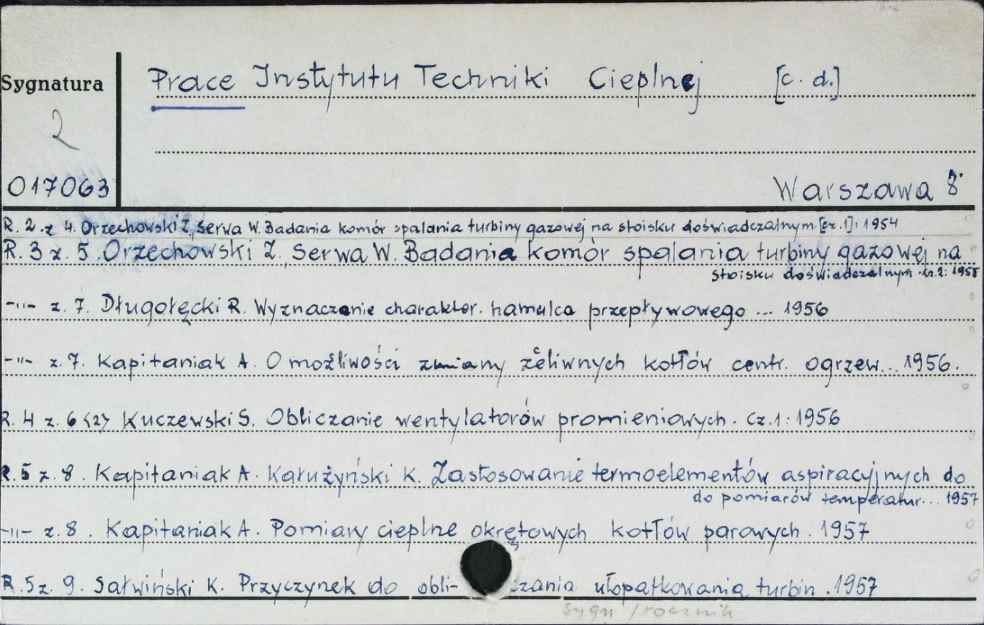 Sygnatura
2
017063
Prace Instytutu Techniki Cieplnej [c. d.]
Warszawa 8°
R. 2. z 4. Orzechowski Z., Serwa W. Badania komór spalania turbiny gazowej na stoisku doświadczalnym [cz.1]: 1954
R. 3 z. 5. Orzechowski Z., Serwa W. Badania komór spalania turbiny gazowej na
stoisku doświadczalnym. cz.2: 1955
-"- z. 7. Długołęcki R. Wyznaczanie charakter. hamulca przepływowego ... 1956
-"- z. 7. Kapitaniak A. O możliwości zmiany żeliwnych kotłów centr. ogrzew... 1956.
R. 4 z. 6<2> Kuczewski S. Obliczanie wentylatorów promieniowych. Cz.1: 1956
R. 5 z. 8. Kapitaniak A. Kałużyński K. Zastosowanie termoelementów aspiracyjnych do
do pomiarów temperatur... 1957
-"- z. 8. Kapitaniak A. Pomiary cieplne okrętowych kotłów parowych. 1957
R. 5 z. 9. Sałwiński K. Przyczynek do obli- czania ułopatkowania turbin. 1957
sygn /rocznik